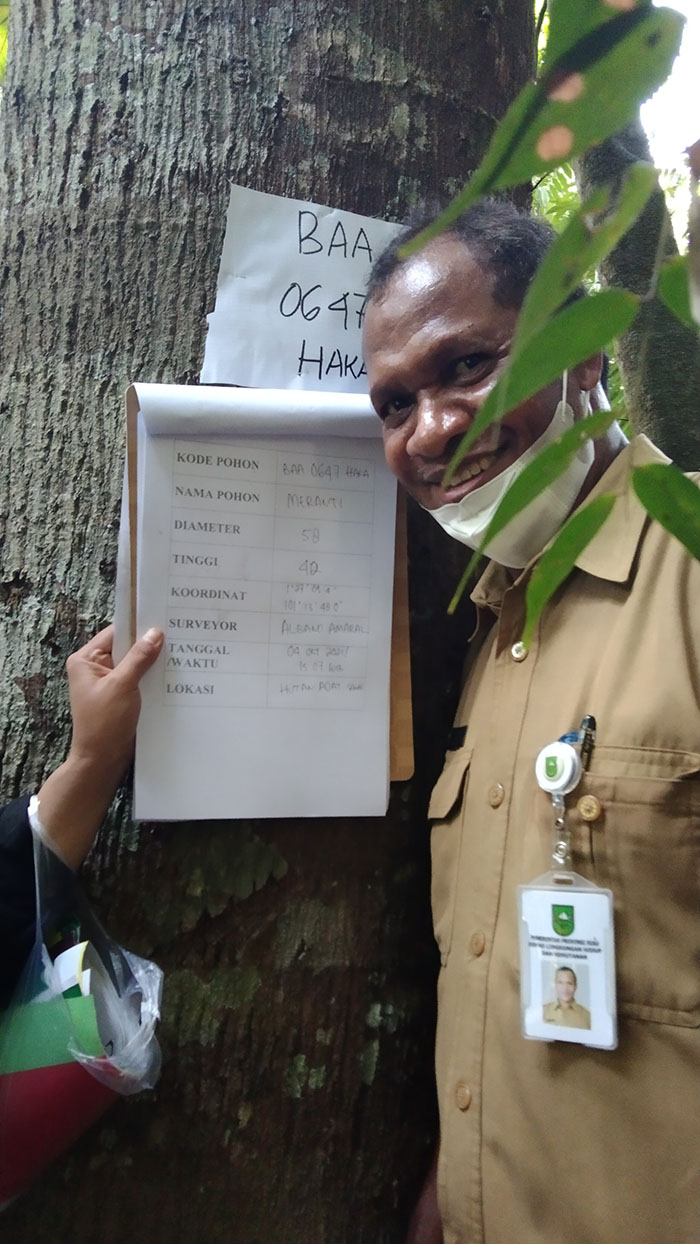 BAA
0647
HAKA
KODE POHON BAA 0647 HAKA
NAMA POHON MERANTI
DIAMETER 58
TINGGI 42
KOORDINAT
101° 13'
SURVEYOR ALBANO AMARAL
TANGGAL 04 OCT 2021/
/WAKTU 15 07 WIB
LOKASI HUTAN ADAT
PEMERINTAH PROVINSI RIAU
DINAS LINGKUNGAN HIDUP
DAN KEHUTANAN